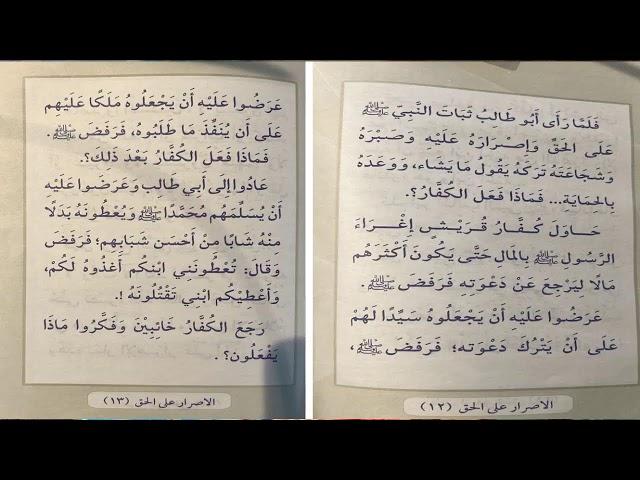 فَلَمَّا رَأَى أَبُو طَالِبٍ ثَبَاتَ النَّبِيِّ ﷺ
عَلَى الحَقِّ وَإِصْرَارَهُ عَلَيْهِ وَصَبْرَهُ
وَشَجَاعَتَهُ تَرَكَهُ يَقُولُ مَا يَشَاء، وَوَعَدَهُ
بِالحِمَايَةِ... فَمَاذَا فَعَلَ الكُفَّارُ؟.
حَاوَلَ كُفَّارُ قُرَيْشٍ إِغْرَاءَ
الرَّسُولِ ﷺ بِالمَالِ حَتَّى يَكُونَ أَكْثَرَهُم
مَالًا لِيَرْجِعَ عَنْ دَعْوَتِهِ فَرَفَضَ ﷺ.
عَرَضُوا عَلَيْهِ أَنْ يَجْعَلُوهُ سَيِّدًا لَهُمْ
عَلَى أَنْ يَتْرُكَ دَعْوَتَه؛ فَرَفَضَ ﷺ،
الاصرار على الحق (١٢)
عَرَضُوا عَلَيْهِ أَنْ يَجْعَلُوهُ مَلَكًا عَلَيْهِم
عَلَى أَن يُنَفِّذَ مَا طَلَبُوهُ، فَرَفَضَ ﷺ.
فَمَاذَا فَعَلَ الكُفَّارُ بَعْدَ ذَلِكَ؟.
عَادُوا إِلَى أَبِي طَالِبٍ وَعَرَضُوا عَلَيْهِ
أَنْ يُسَلِّمَهُم مُحَمَّدًا ﷺ وَيُعْطُونَهُ بَدَلًا
مِنْهُ شَابًا مِنْ أَحْسَنِ شَبَابِهِم؛ فَرَفَضَ
وَقَالَ: تُعْطُونَنِي ابْنَكُم أَغْذُوهُ لَكُمْ،
وَأُعْطِيْكُم ابْنِي تَقْتُلُونَهُ !.
رَجَعَ الكُفَّارُ خَائِبِيْنَ وَفَكَّرُوا مَاذَا
يَفْعَلُون؟.
الاصرار على الحق (١٣)